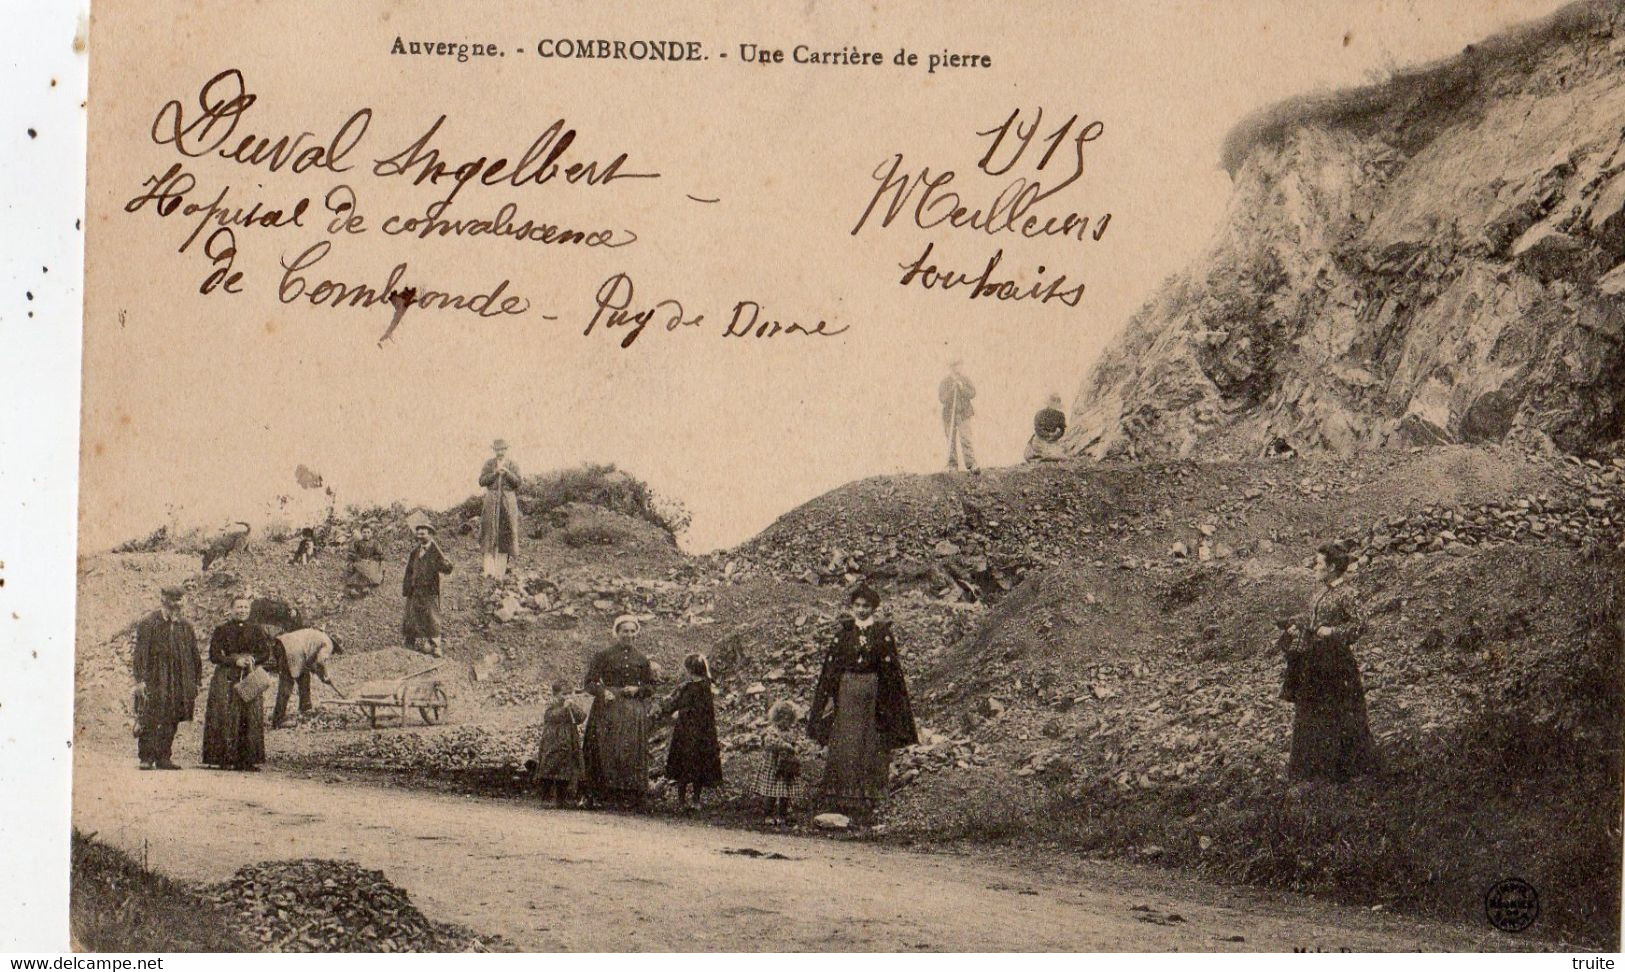 Auvergne. - COMBRONDE. - Une Carrière de pierre
Duval Angelbert -
Hopital de convalescence
de Combronde - Puy de Dome
1915
Meilleurs
souhaits
delcampe.net
truite